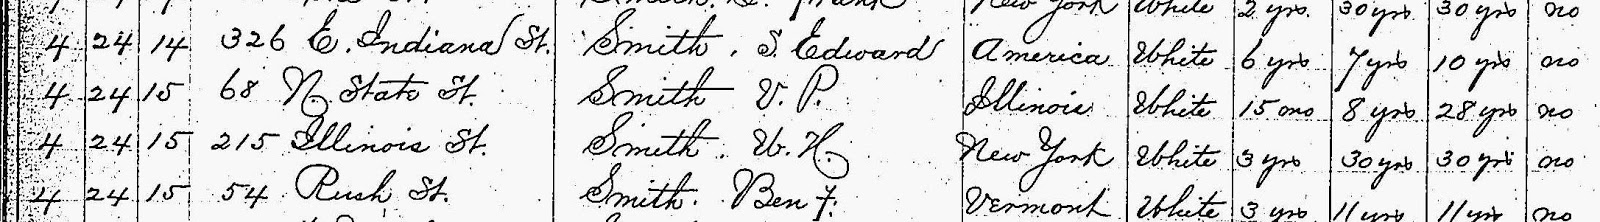 New York White 2 yrs. 30 yrs 30 yrs no
4 24 14 326 E. Indiana St. Smith. S. Edward America White 6 yrs 7 yrs 10 yrs no
4 24 15 68 N. State St. Smith V. P. Illinois White 15 mo 8 yrs 28 yrs no
4 24 15 215 Illinois St. Smith. W. H. New York White 3 yrs 30 yrs 30 yrs no
4 24 15 54 Rush St. Smith. Ben F. Vermont White 3 yrs 11 yrs 11 yrs no